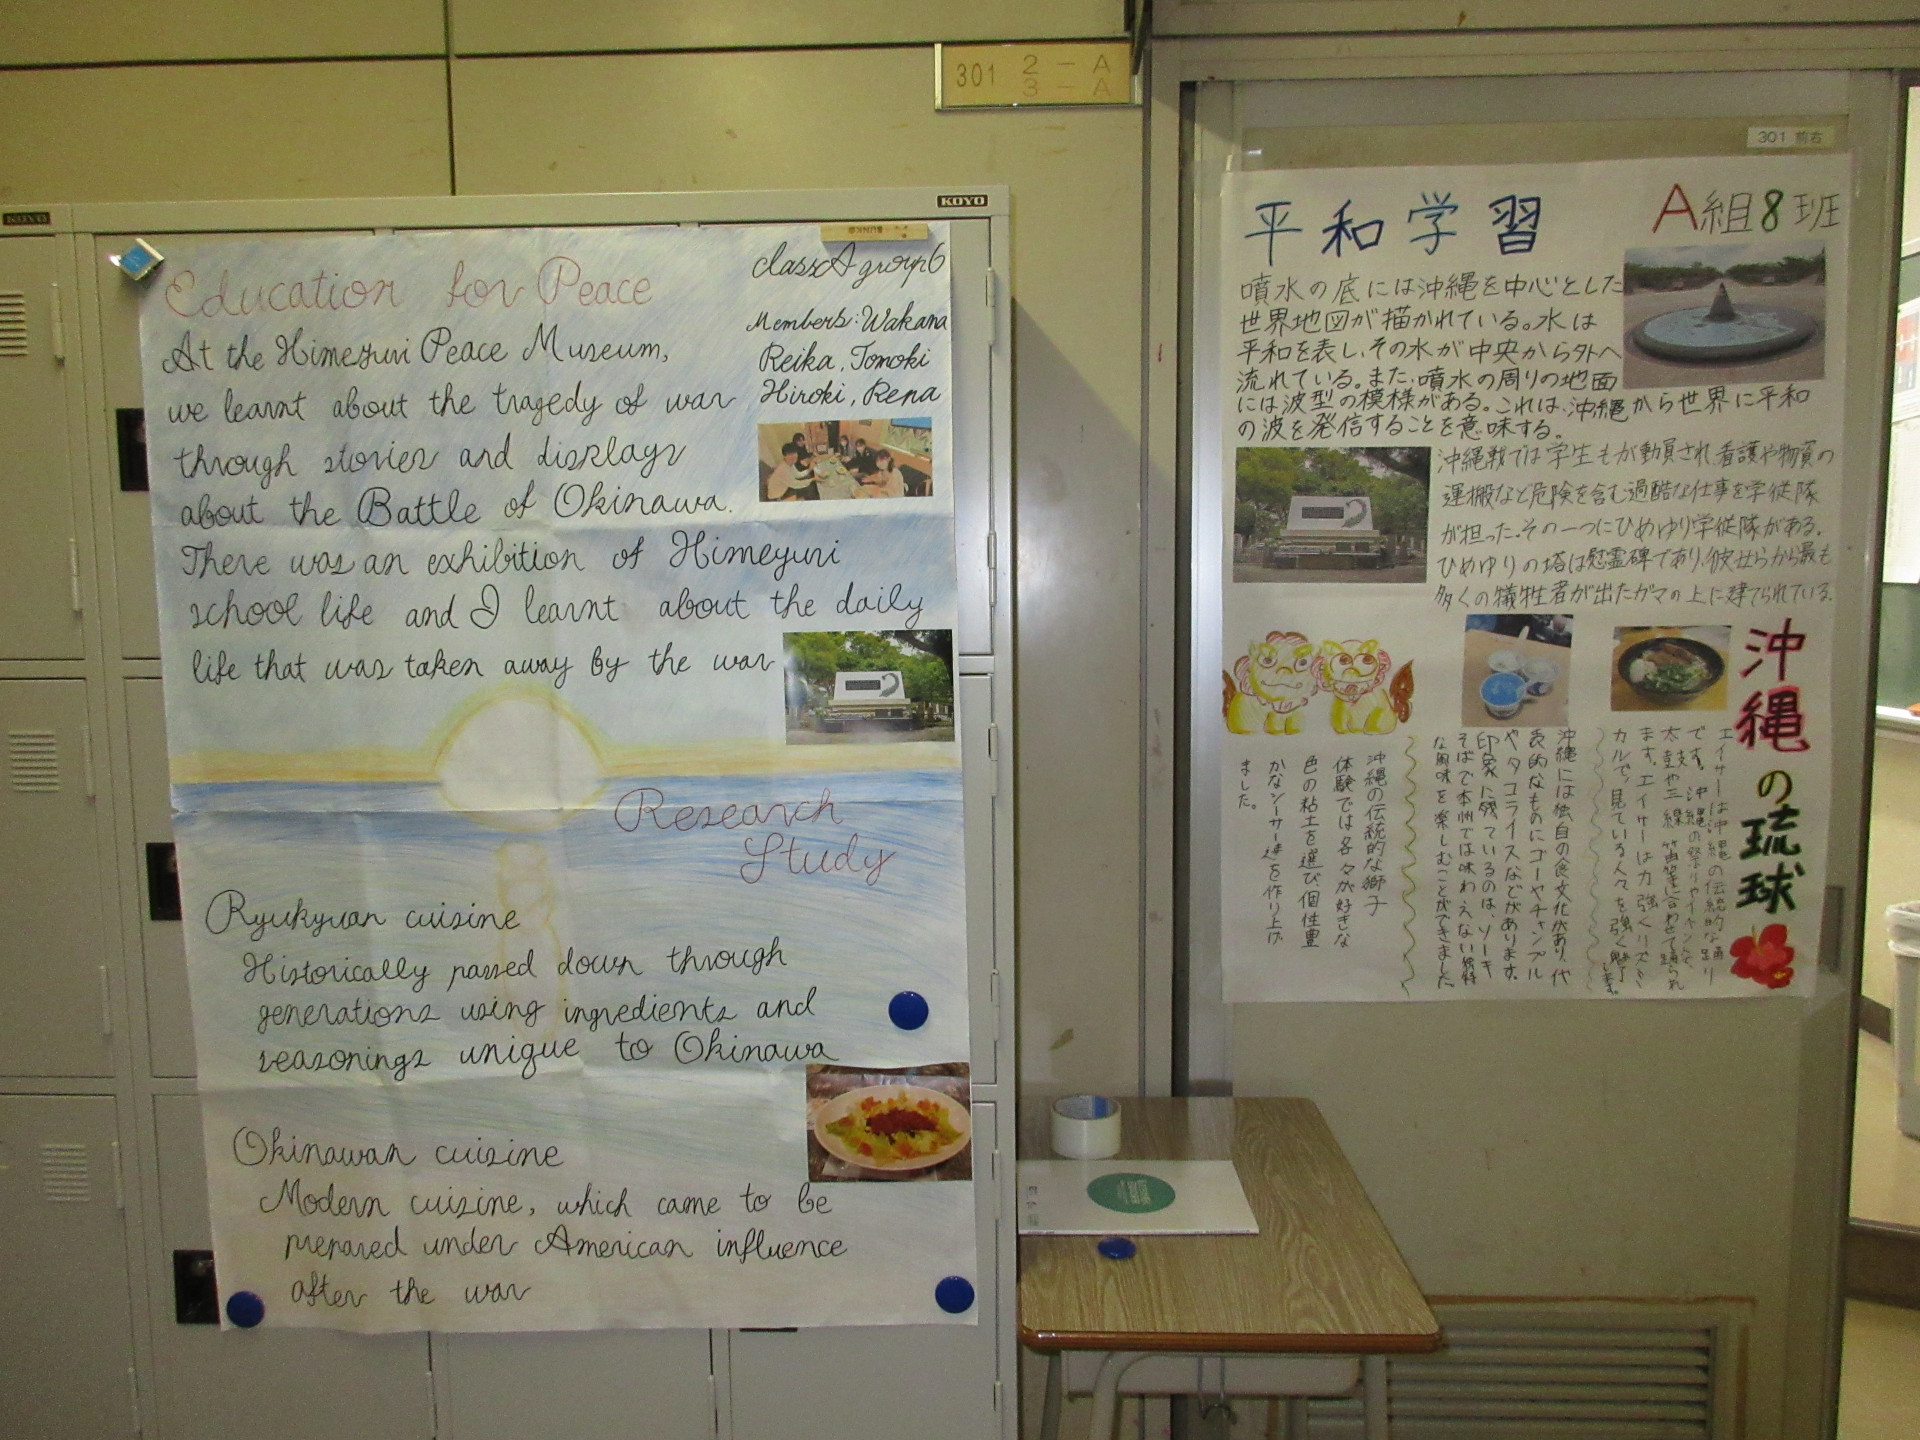 301 2-A
3-A
KOYO
KOYO
Education for Peace
class A group 6
At the Himeyuri Peace Museum,
we learnt about the tragedy of war
through stories and displays
about the Battle of Okinawa.
There was an exhibition of Himeyuri
school life and I learnt about the daily
life that was taken away by the war
Members: Wakana
Reika, Tomoki
Hiroki, Rena
Research
Study
Ryukyuan cuisine
Historically passed down through
generations using ingredients and
seasonings unique to Okinawa
Okinawan cuisine
Modern cuisine, which came to be
prepared under American influence
after the war
301 前右
平和学習
A組8班
噴水の底には沖縄を中心とした
世界地図が描かれている。水は
平和を表し、その水が中央から外へ
流れている。また、噴水の周りの地面
には波型の模様がある。これは、沖縄から世界に平和
の波を発信することを意味する。
沖縄戦では学生もが動員され看護や物資の
運搬など危険を含む過酷な仕事を学徒隊
が担った。その一つにひめゆり学徒隊がある。
ひめゆりの塔は慰霊碑であり、彼女らから最も
多くの犠牲者が出たガマの上に建てられている。
沖縄の琉球
エイサーは沖縄の伝統的な踊り
です。沖縄の祭りやイベントで、
太鼓や三線、笛等に合わせて踊られ
ます。エイサーは力強くリズミ
カルで、見ている人々を強く魅了します。
沖縄には独自の食文化があり、代
表的なものにゴーヤチャンプル
やタコライスなどがあります。
印象に残っているのは、ソーキ
そばで本州では味わえない独特
な風味を楽しむことができました。
沖縄の伝統的な獅子
体験では各々が好きな
色の粘土を選び、個性豊
かなシーサー達を作り上げ
ました。